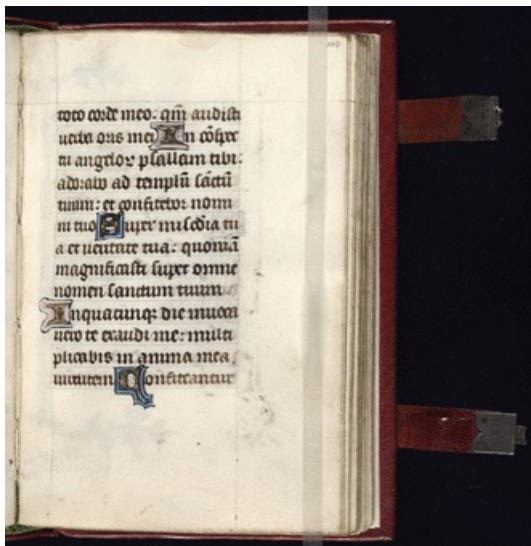 toto corde meo: qm̄ audisti
uerba oris mei In cōspec
tu angeloꝝ psallam tibi:
adorabo ad templū sanctū
tuum: et confitebor nomi
ni tuo Super mīsc̄dia tu
a et ueritate tua: quoniā
magnificasti super omne
nomen sanctum tuum
In quacunqꝫ die inuoca
uero te exaudi me: multi
plicabis in anima mea
uirtutem Confiteantur